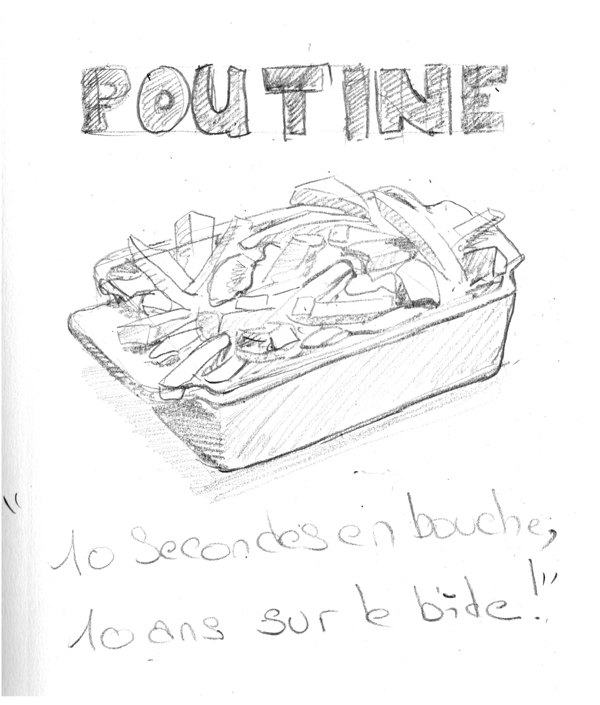 POUTINE
"10 secondes en bouche,
10 ans sur le bide!"